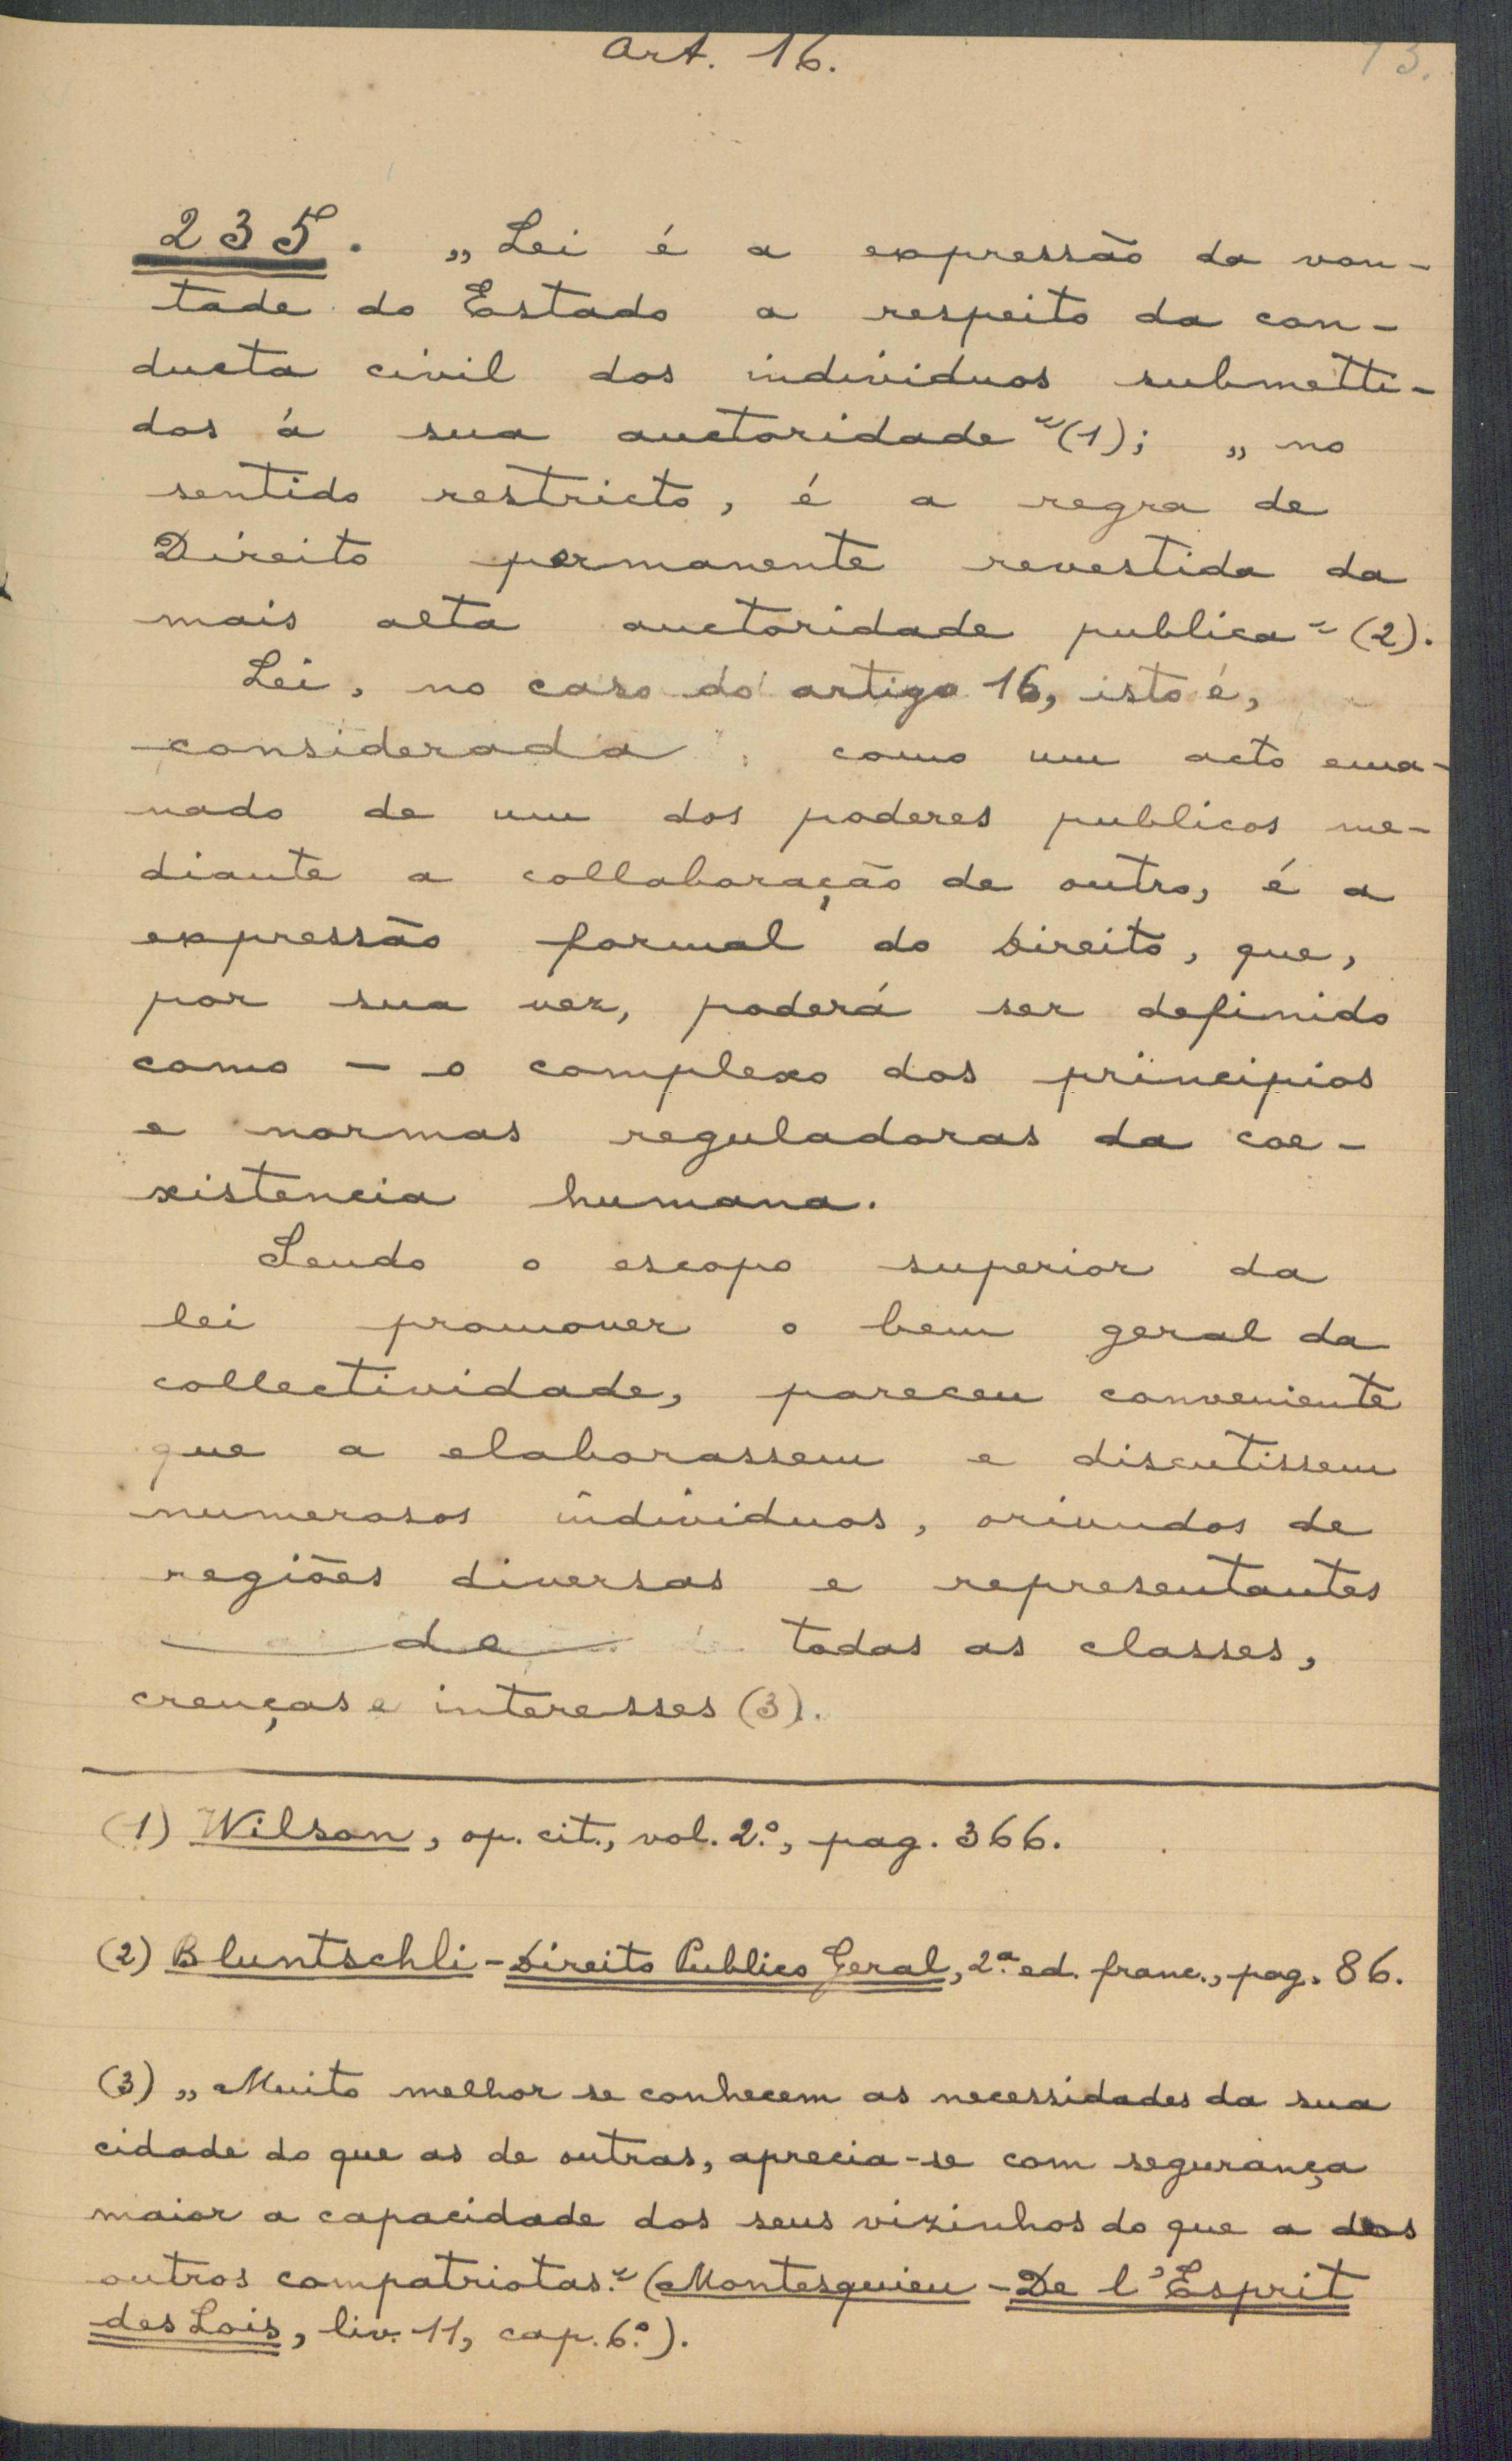 Art. 16.
73.
235. „Lei é a expressão da von-
tade do Estado a respeito da con-
ducta civil dos individuos submetti-
dos á sua auctoridade“ (1); „no
sentido restricto, é a regra de
Direito permanente revestida da
mais alta auctoridade publica“ (2).
Lei, no caso do artigo 16, isto é,
considerada como um acto ema-
nado de um dos poderes publicos me-
diante a collaboração de outro, é a
expressão formal do Direito, que,
por sua vez, poderá ser definido
como — o complexo dos principios
e normas reguladoras da coe-
xistencia humana.
Sendo o escopo superior da
lei promover o bem geral da
collectividade, pareceu conveniente
que a elaborassem e discutissem
numerosos individuos, oriundos de
regiões diversas e representantes
de todas as classes,
crenças e interesses (3).
(1) Wilson, op. cit., vol. 2.º, pag. 366.
(2) Bluntschli - Direito Publico Geral, 2.ª ed. franc., pag. 86.
(3) „Muito melhor se conhecem as necessidades da sua
cidade do que as de outras, aprecia-se com segurança
maior a capacidade dos seus vizinhos do que a dos
outros compatriotas.“ (Montesquieu - De l'Esprit
des Lois, liv. 11, cap. 6.º).